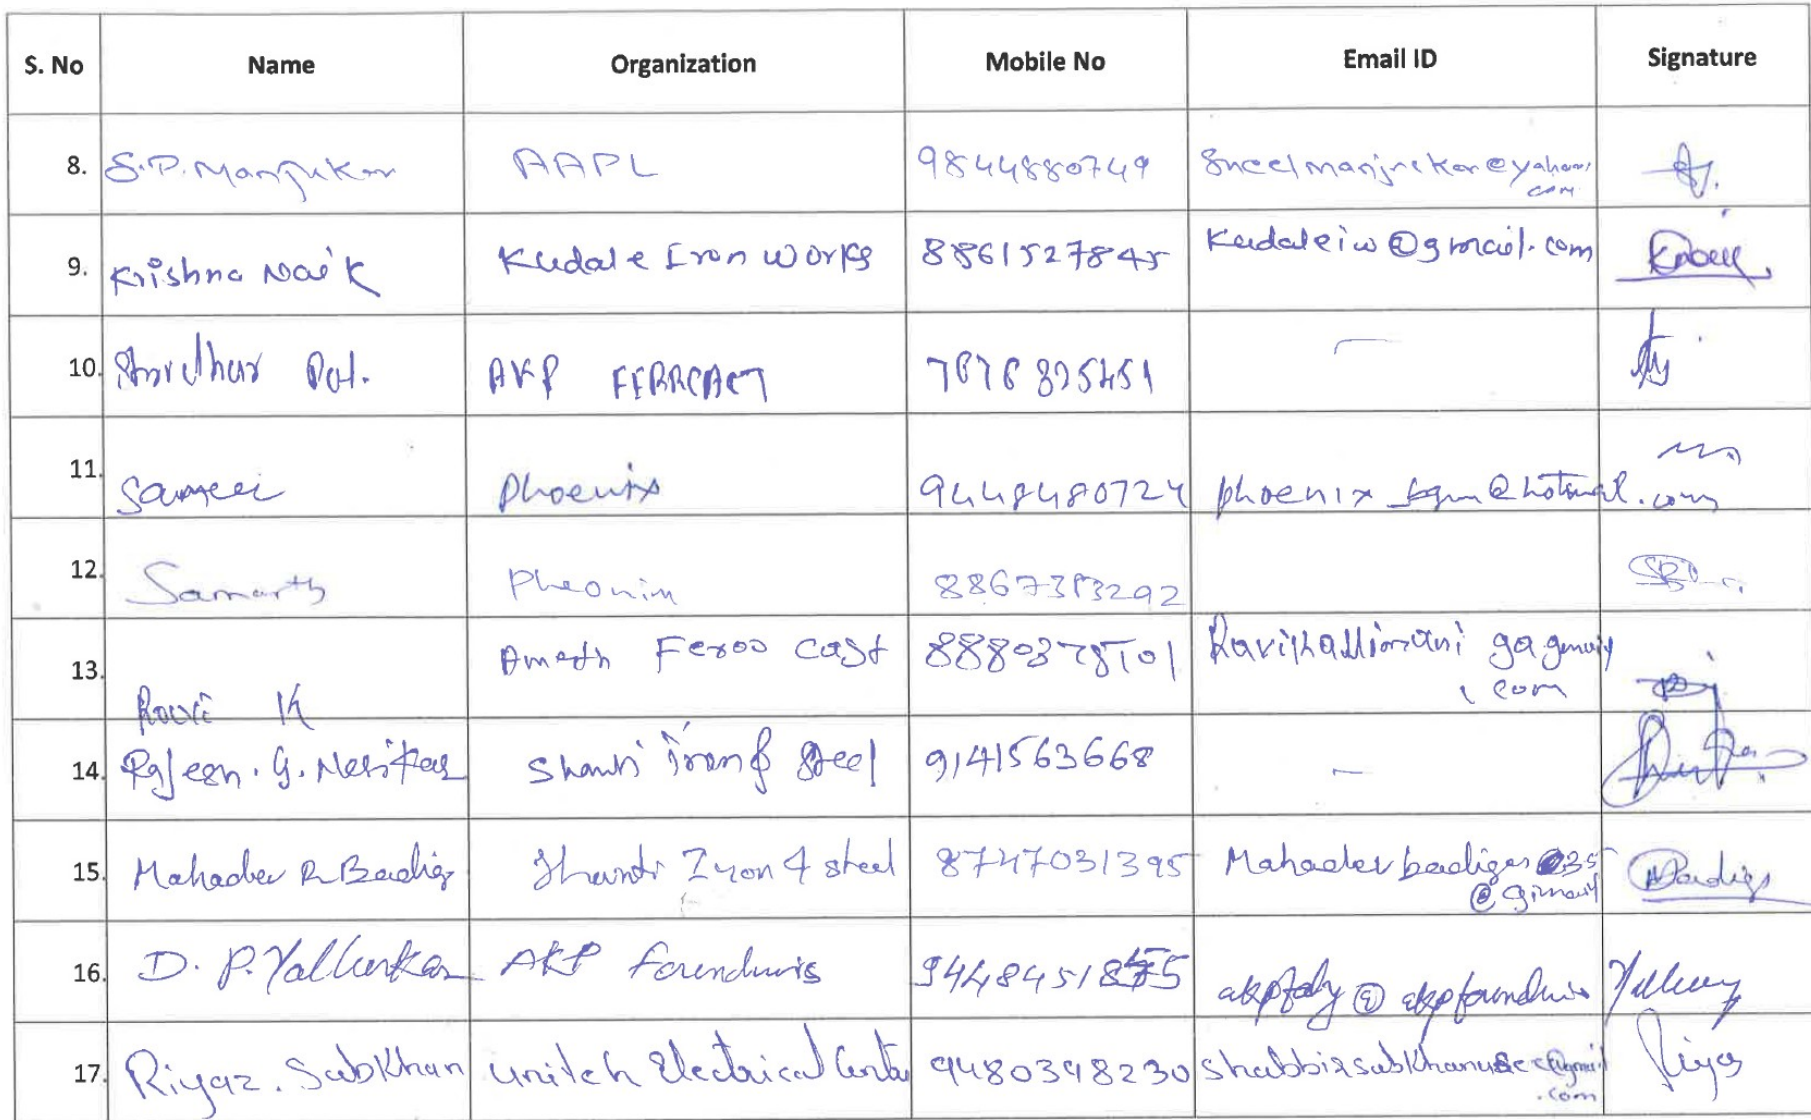 S. No Name Organization Mobile No Email ID Signature
8. S.P. Manjrekar AAPL 9844880749 Sneelmanjrekar@yahoo.
com
9. Krishna Naik Kudale Iron Works 8861527845 Kudaleiw@gmail.com
10. AKP 7676825451 —
11. Sameer Phoenix 9448480724 phoenix_bgm@hotmail.com
12. Samarth Pheonix 8867313292
13. Ravi K Amath Feroo cast 8880378101
.com
14. Rajesh. G. Nesrikar Shanti Iron & Steel 9141563668 —
15. Mahadev R Badig Shanti Iron & steel 8747031395 Mahadevbadiger35
@gimail
16. D. P. Yallurkar AKP Foundries akpfdy@akpfoundries
17. Riyaz. Sabkhan Unitech Electrical Centre 9480398230
.com